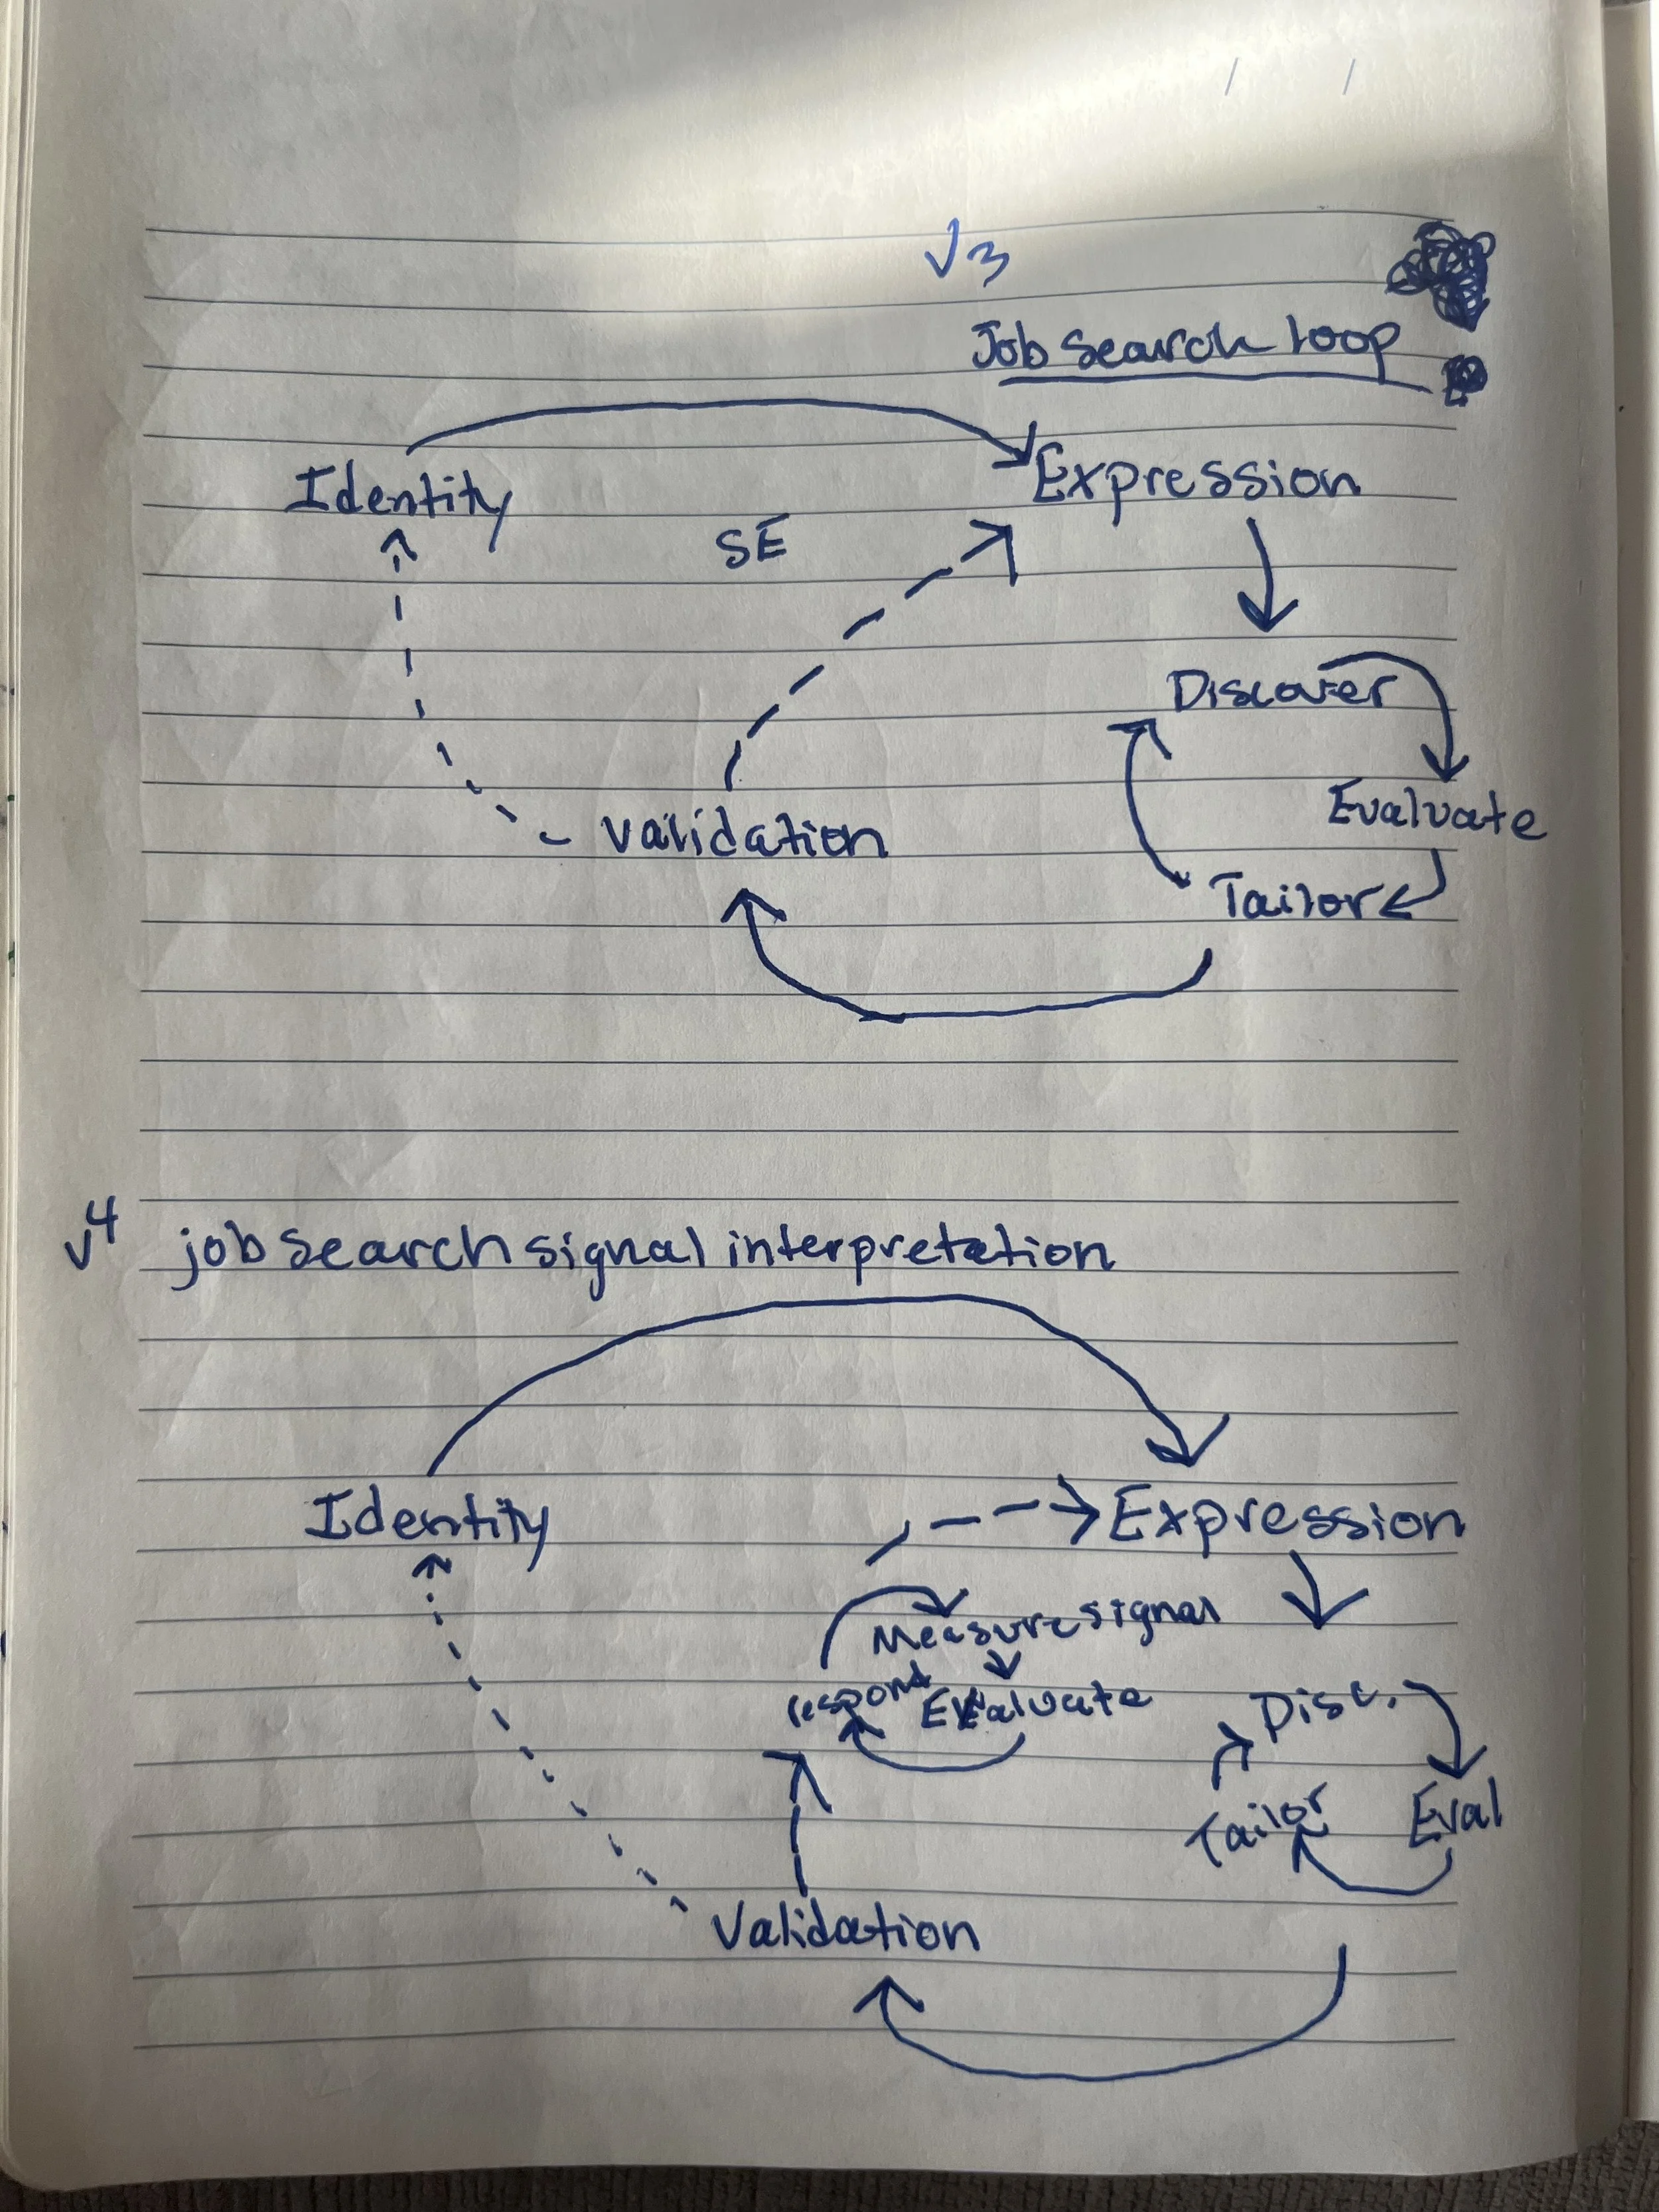 v3
Job Search Loop
Identity
Expression
SE
Discover
Evaluate
Validation
Tailor
v4 job search signal interpretation
Identity
Expression
Measure signal
respond
Evaluate
Disc.
Tailor
Eval
Validation